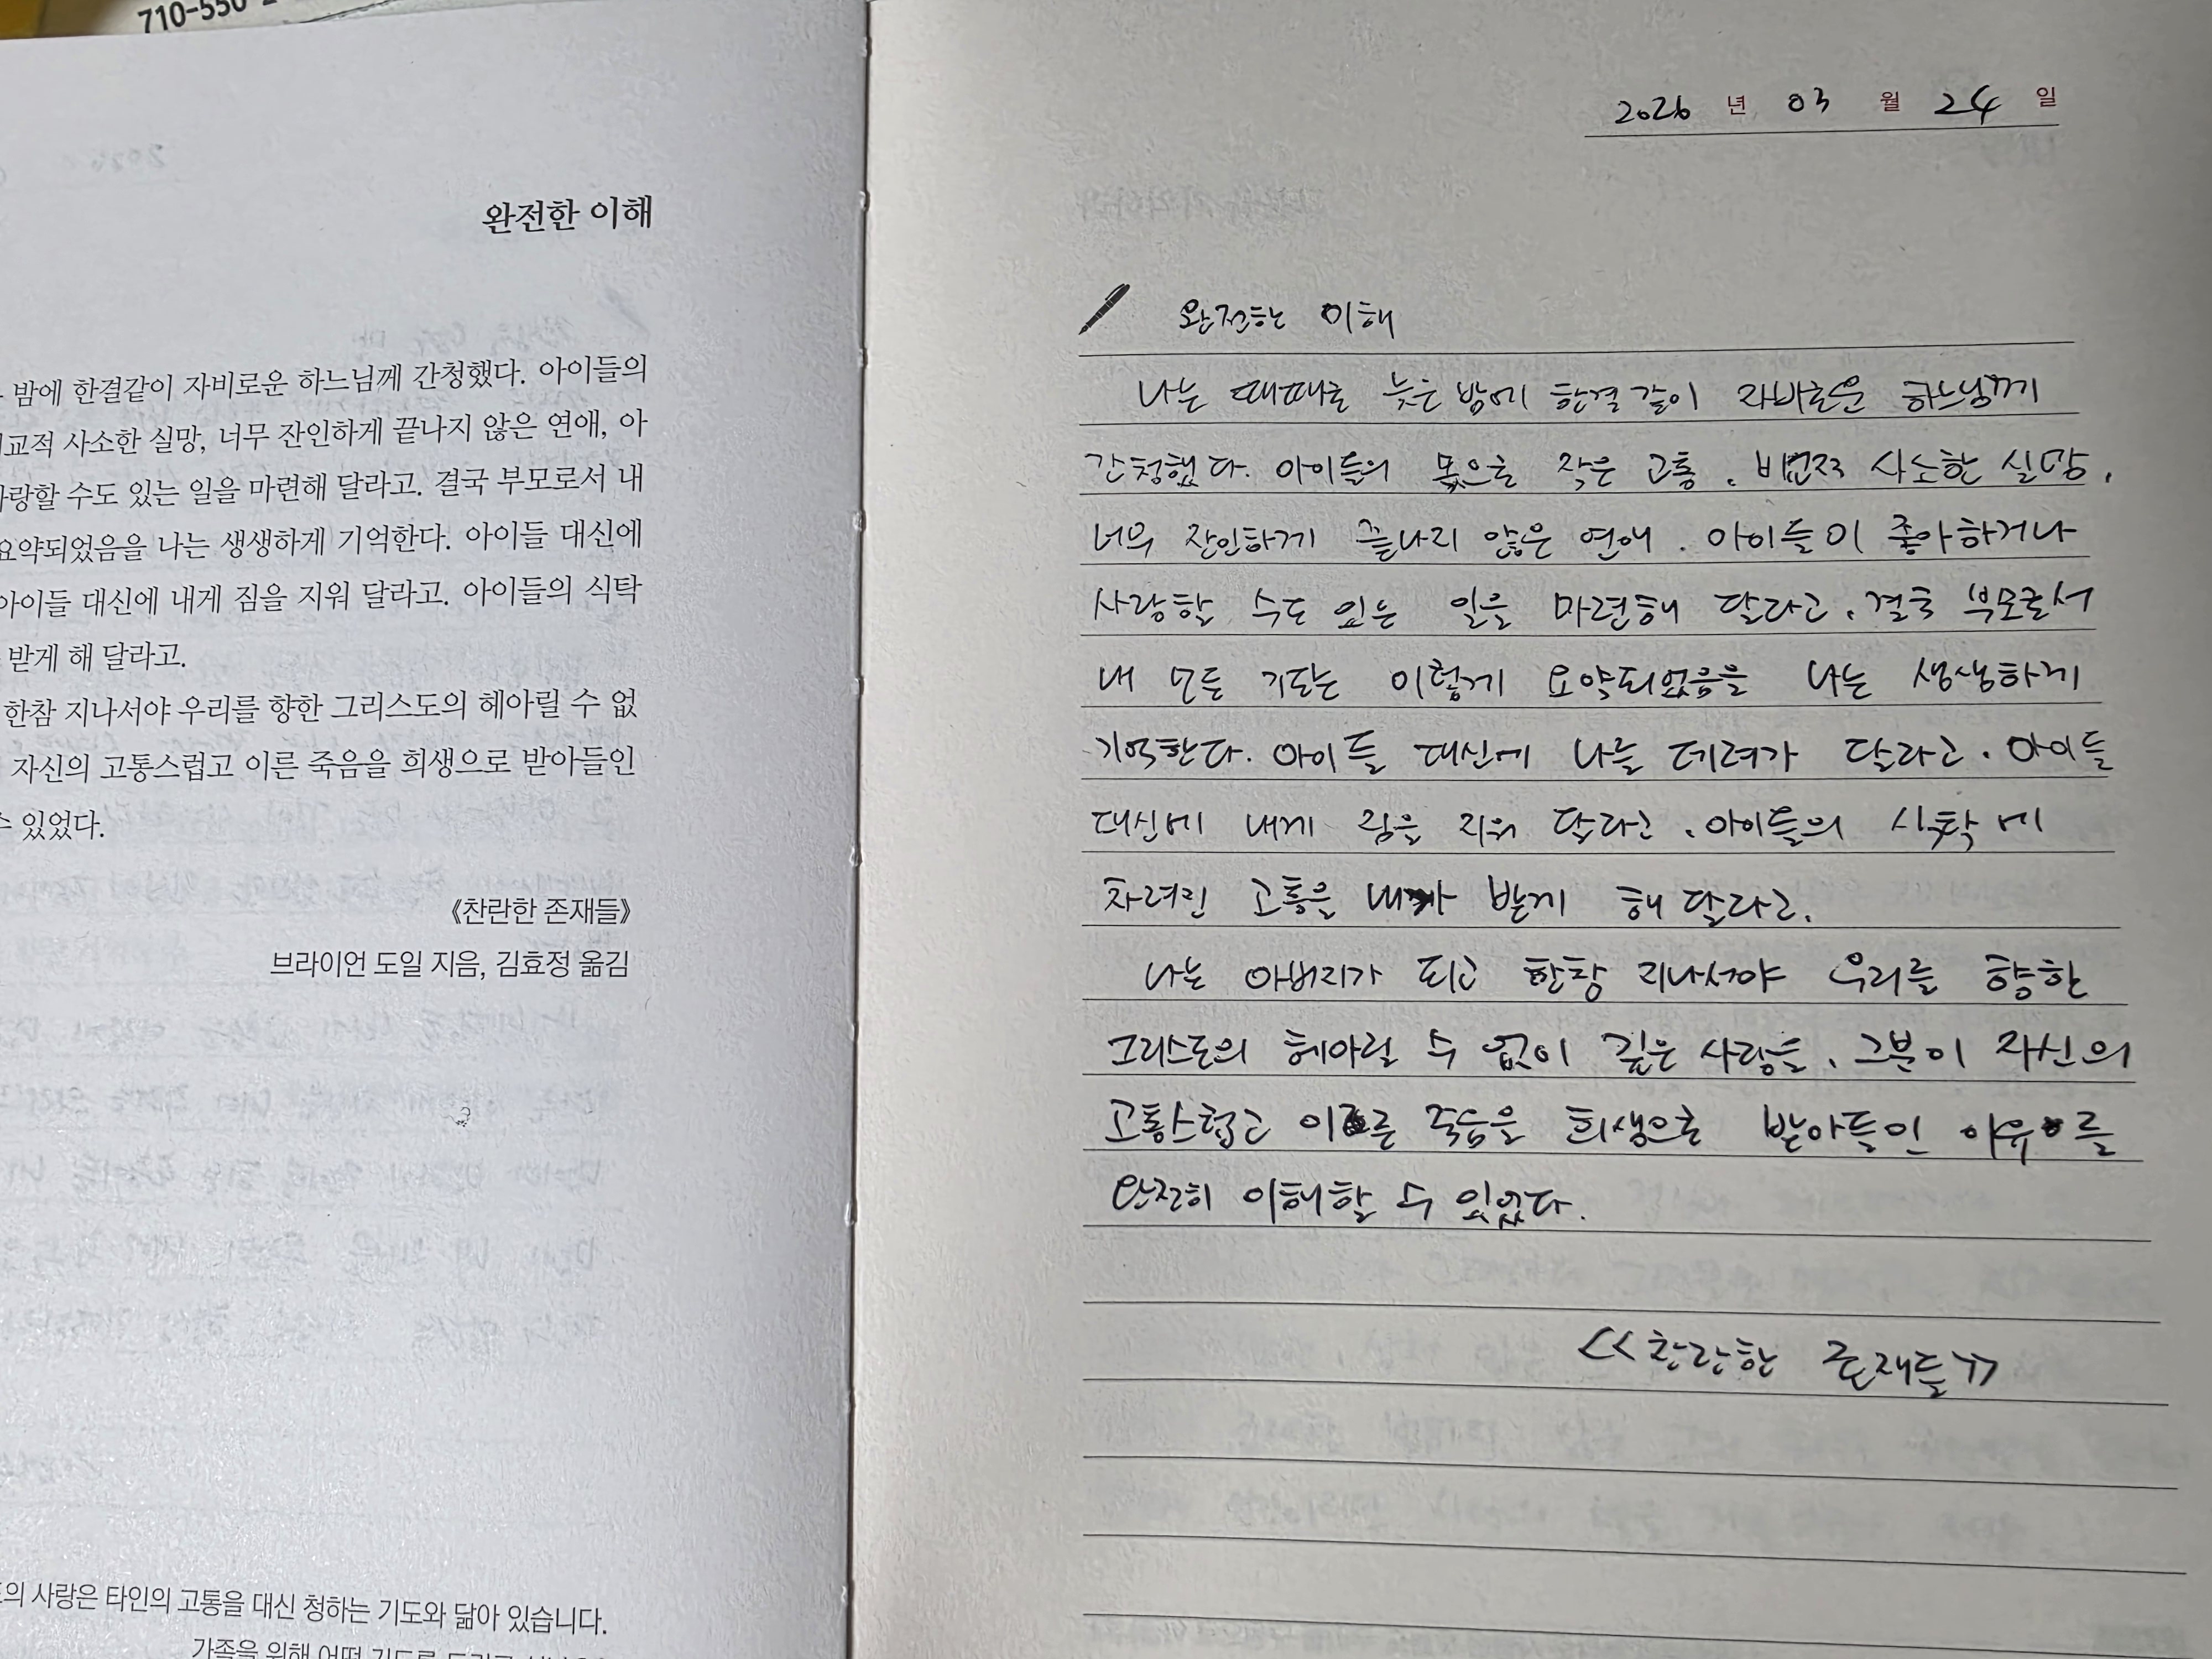 710-550-2
완전한 이해
밤에 한결같이 자비로운 하느님께 간청했다. 아이들의
교적 사소한 실망, 너무 잔인하게 끝나지 않은 연애, 아
사랑할 수도 있는 일을 마련해 달라고. 결국 부모로서 내
요약되었음을 나는 생생하게 기억한다. 아이들 대신에
아이들 대신에 내게 짐을 지워 달라고. 아이들의 식탁
받게 해 달라고.
한참 지나서야 우리를 향한 그리스도의 헤아릴 수 없
자신의 고통스럽고 이른 죽음을 희생으로 받아들인
수 있었다.
《찬란한 존재들》
브라이언 도일 지음, 김효정 옮김
의 사랑은 타인의 고통을 대신 청하는 기도와 닮아 있습니다.
가족을 위해 어떤 기도를
2026 년 03 월 24 일
완전한 이해
나는 때때로 늦은 밤에 한결같이 자비로운 하느님께
간청했다. 아이들의 몫으로 작은 고통, 사소한 실망,
너무 잔인하게 끝나지 않은 연애, 아이들이 좋아하거나
사랑할 수도 있는 일을 마련해 달라고. 결국 부모로서
내 모든 기도는 이렇게 요약되었음을 나는 생생하게
기억한다. 아이들 대신에 나를 데려가 달라고. 아이들
대신에 내게 짐을 지워 달라고. 아이들의 식탁에
차려진 고통을 내가 받게 해 달라고.
나는 아버지가 되고 한참 지나서야 우리를 향한
그리스도의 헤아릴 수 없이 깊은 사랑을, 그분이 자신의
고통스럽고 이른 죽음을 희생으로 받아들인 이유를
완전히 이해할 수 있었다.
<<찬란한 존재들>>